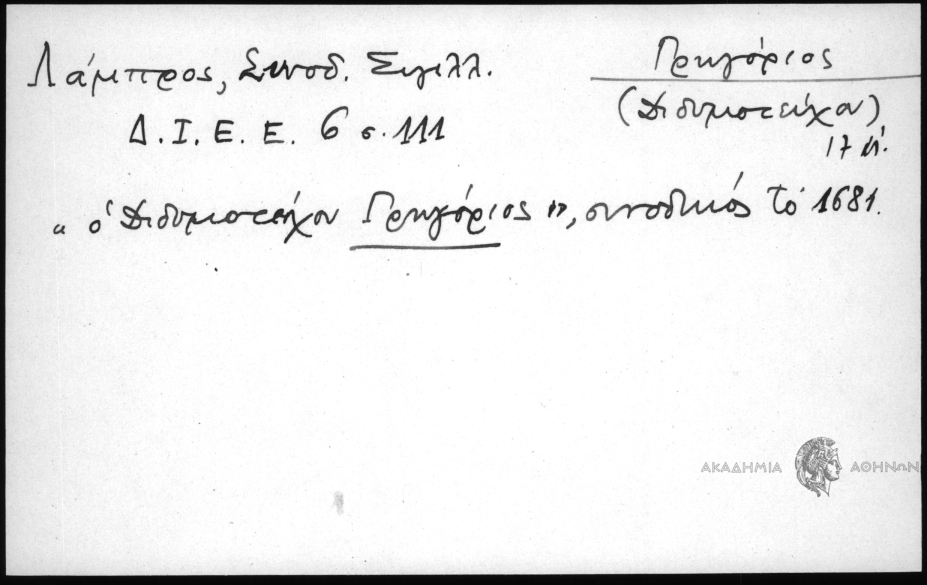 Λάμπρος, Συνοδ. Σιγιλλ.
Δ. Ι. Ε. Ε. 6 σ. 111
Γρηγόριος
(Διδυμοτείχου)
17 αἰ.
“ ὁ Διδυμοτείχου Γρηγόριος ”, συνοδικός τὸ 1681.
ΑΚΑΔΗΜΙΑ ΑΘΗΝΩΝ